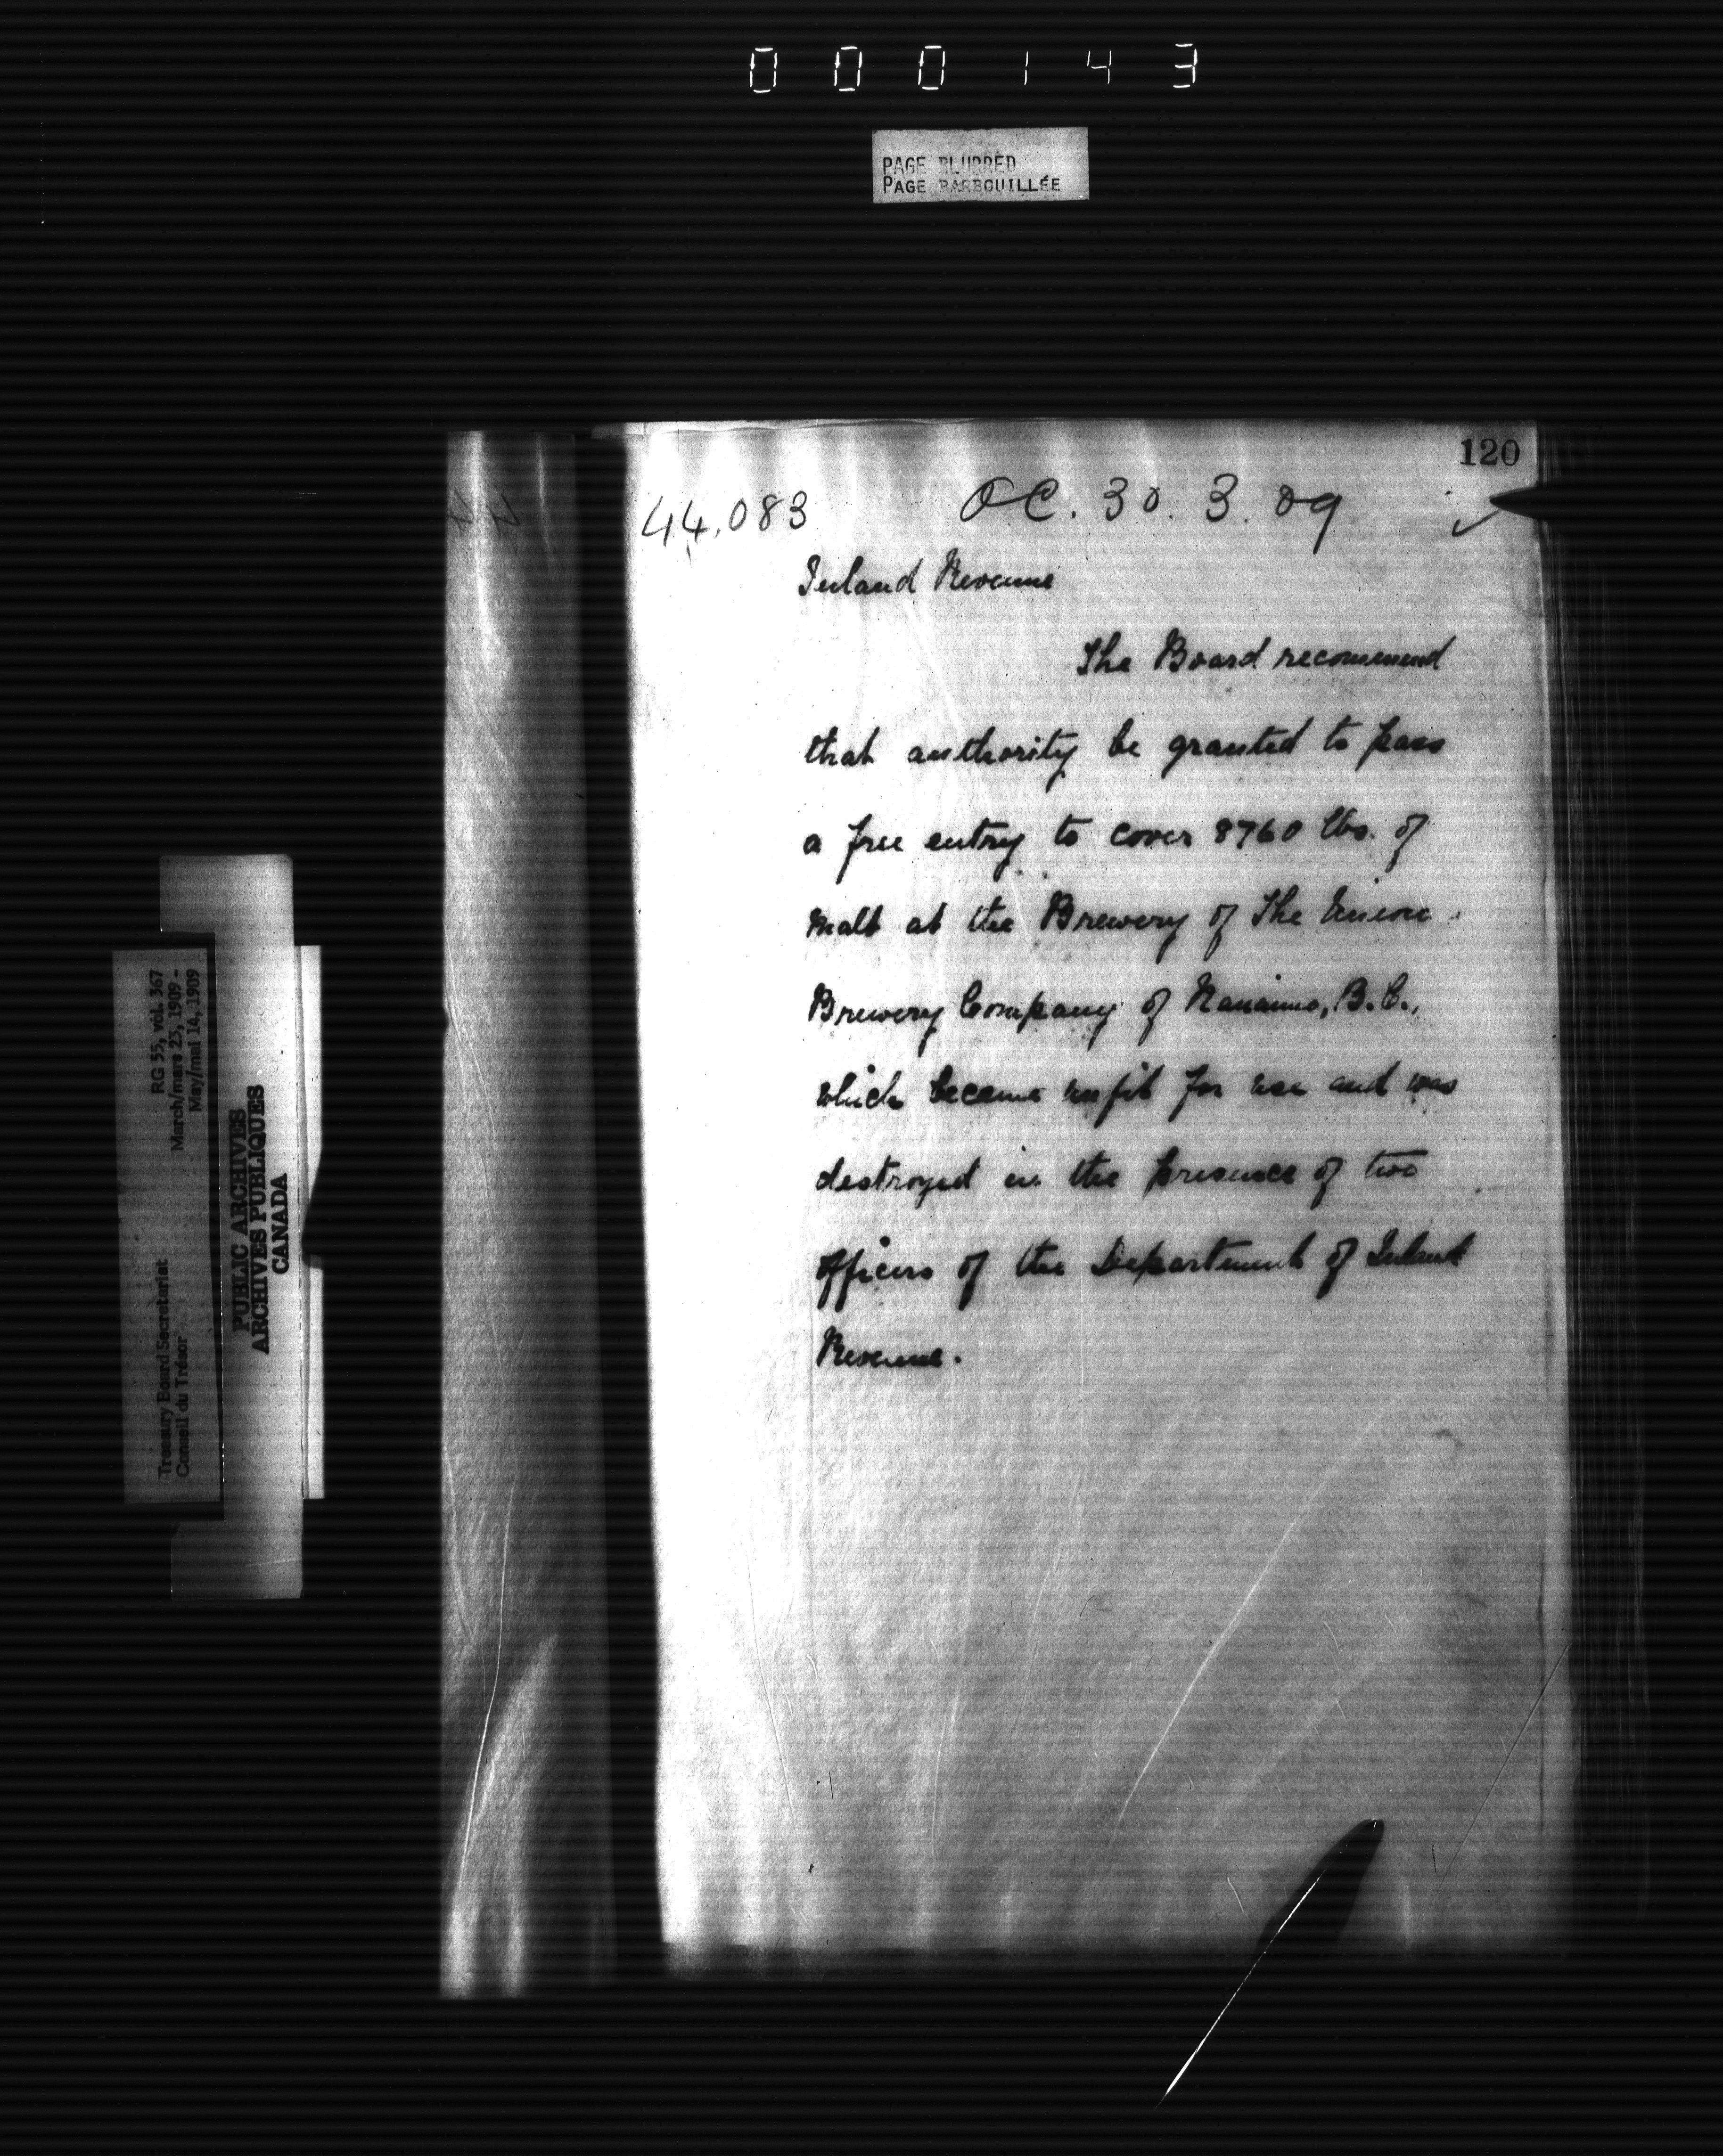 000143
PAGE BLURRED
PAGE BARBOUILLÉE
120
44,083 OC. 30. 3. 09
Inland Revenue
The Board recommend
that authority be granted to pass
a free entry to cover 8760 lbs. of
Malt at the Brewery of The Union
Brewery Company of Nanaimo, B.C.,
which became unfit for use and was
destroyed in the presence of two
Officers of the Department of Inland
Revenue.
RG 55, vol. 367
March/mars 23, 1909 -
May/mai 14, 1909
Treasury Board Secretariat
Conseil du Trésor
PUBLIC ARCHIVES
ARCHIVES PUBLIQUES
CANADA